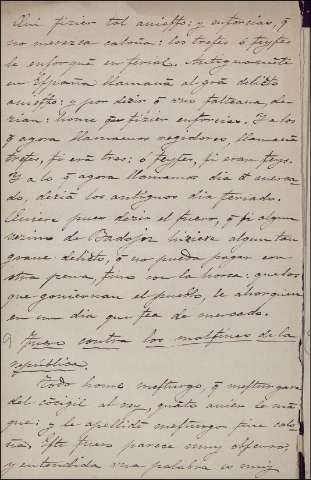 Qui fizier tal aniesto: y enforcias, q̃
no merezca caloña: los tresses ó seystes
le enforquẽ en ferial. Antiguamente
en España llamauã al grã delicto
aniesto: y por dezir q̃ uno faltaua, de
zian: home que fizier enforcias. Y a los
q̃ agora llamamos regidores, llamauã
treses, si erã tres: ó seystes, si eran seys.
Y a lo q̃ agora llamamos dia de merca-
do, deziã los antiguos dia feriado.
Quiere pues dezir el fuero, q̃ si algun
vezino de Badajoz hiziese algun tan
graue delicto, q̃ no pueda pagar con
otra pena, sino con la horca: que los
que gouiernan el pueblo, le ahorquen
en un dia que sea de mercado.
Fuero contra los malsines de la
república.
Todo home mesturgo, q̃ mesturgare
del cõcegil al rey, quãto auier le ma
que: y le apellidẽ mesturgo sine calo
ña. Este fuero parece muy obscuro,
y entendida una palabra es muy